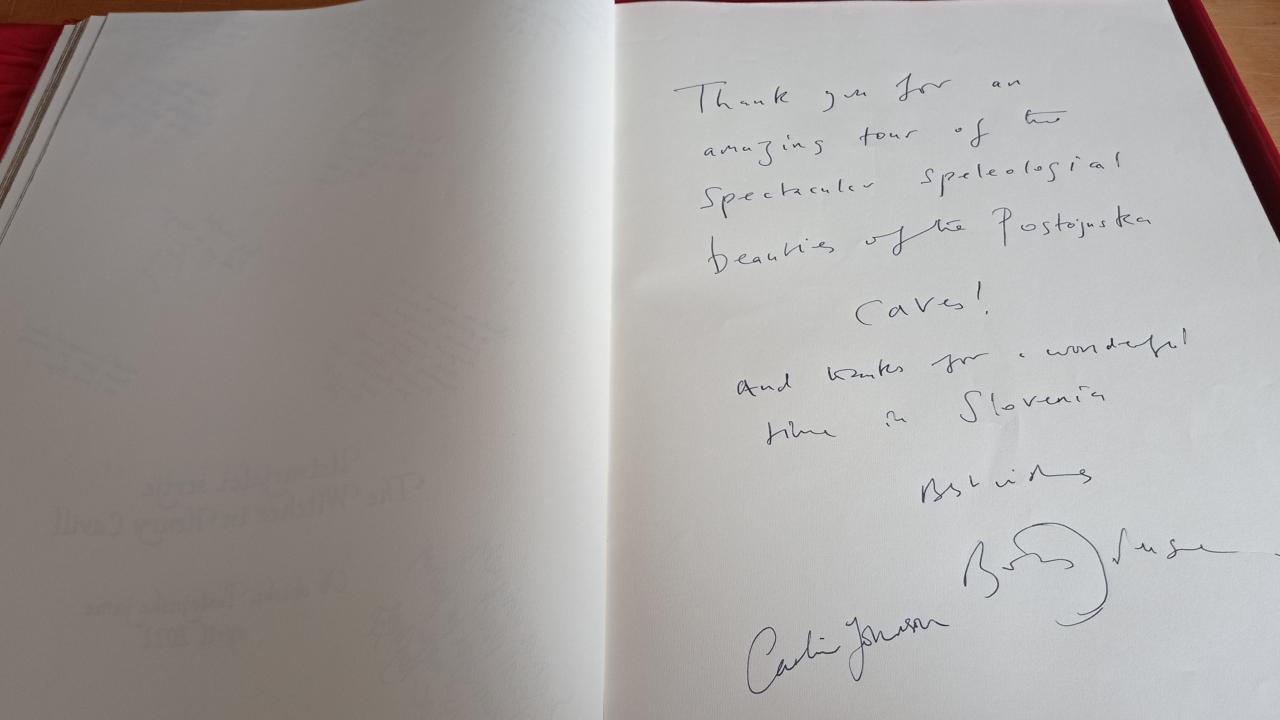 Thank you for an
amazing tour of the
spectacular speleological
beauties of the Postojnska
Caves!
And thanks for a wonderful
time in Slovenia
Best wishes
Boris Johnson
Carrie Johnson
The Witcher in Henry Cavill